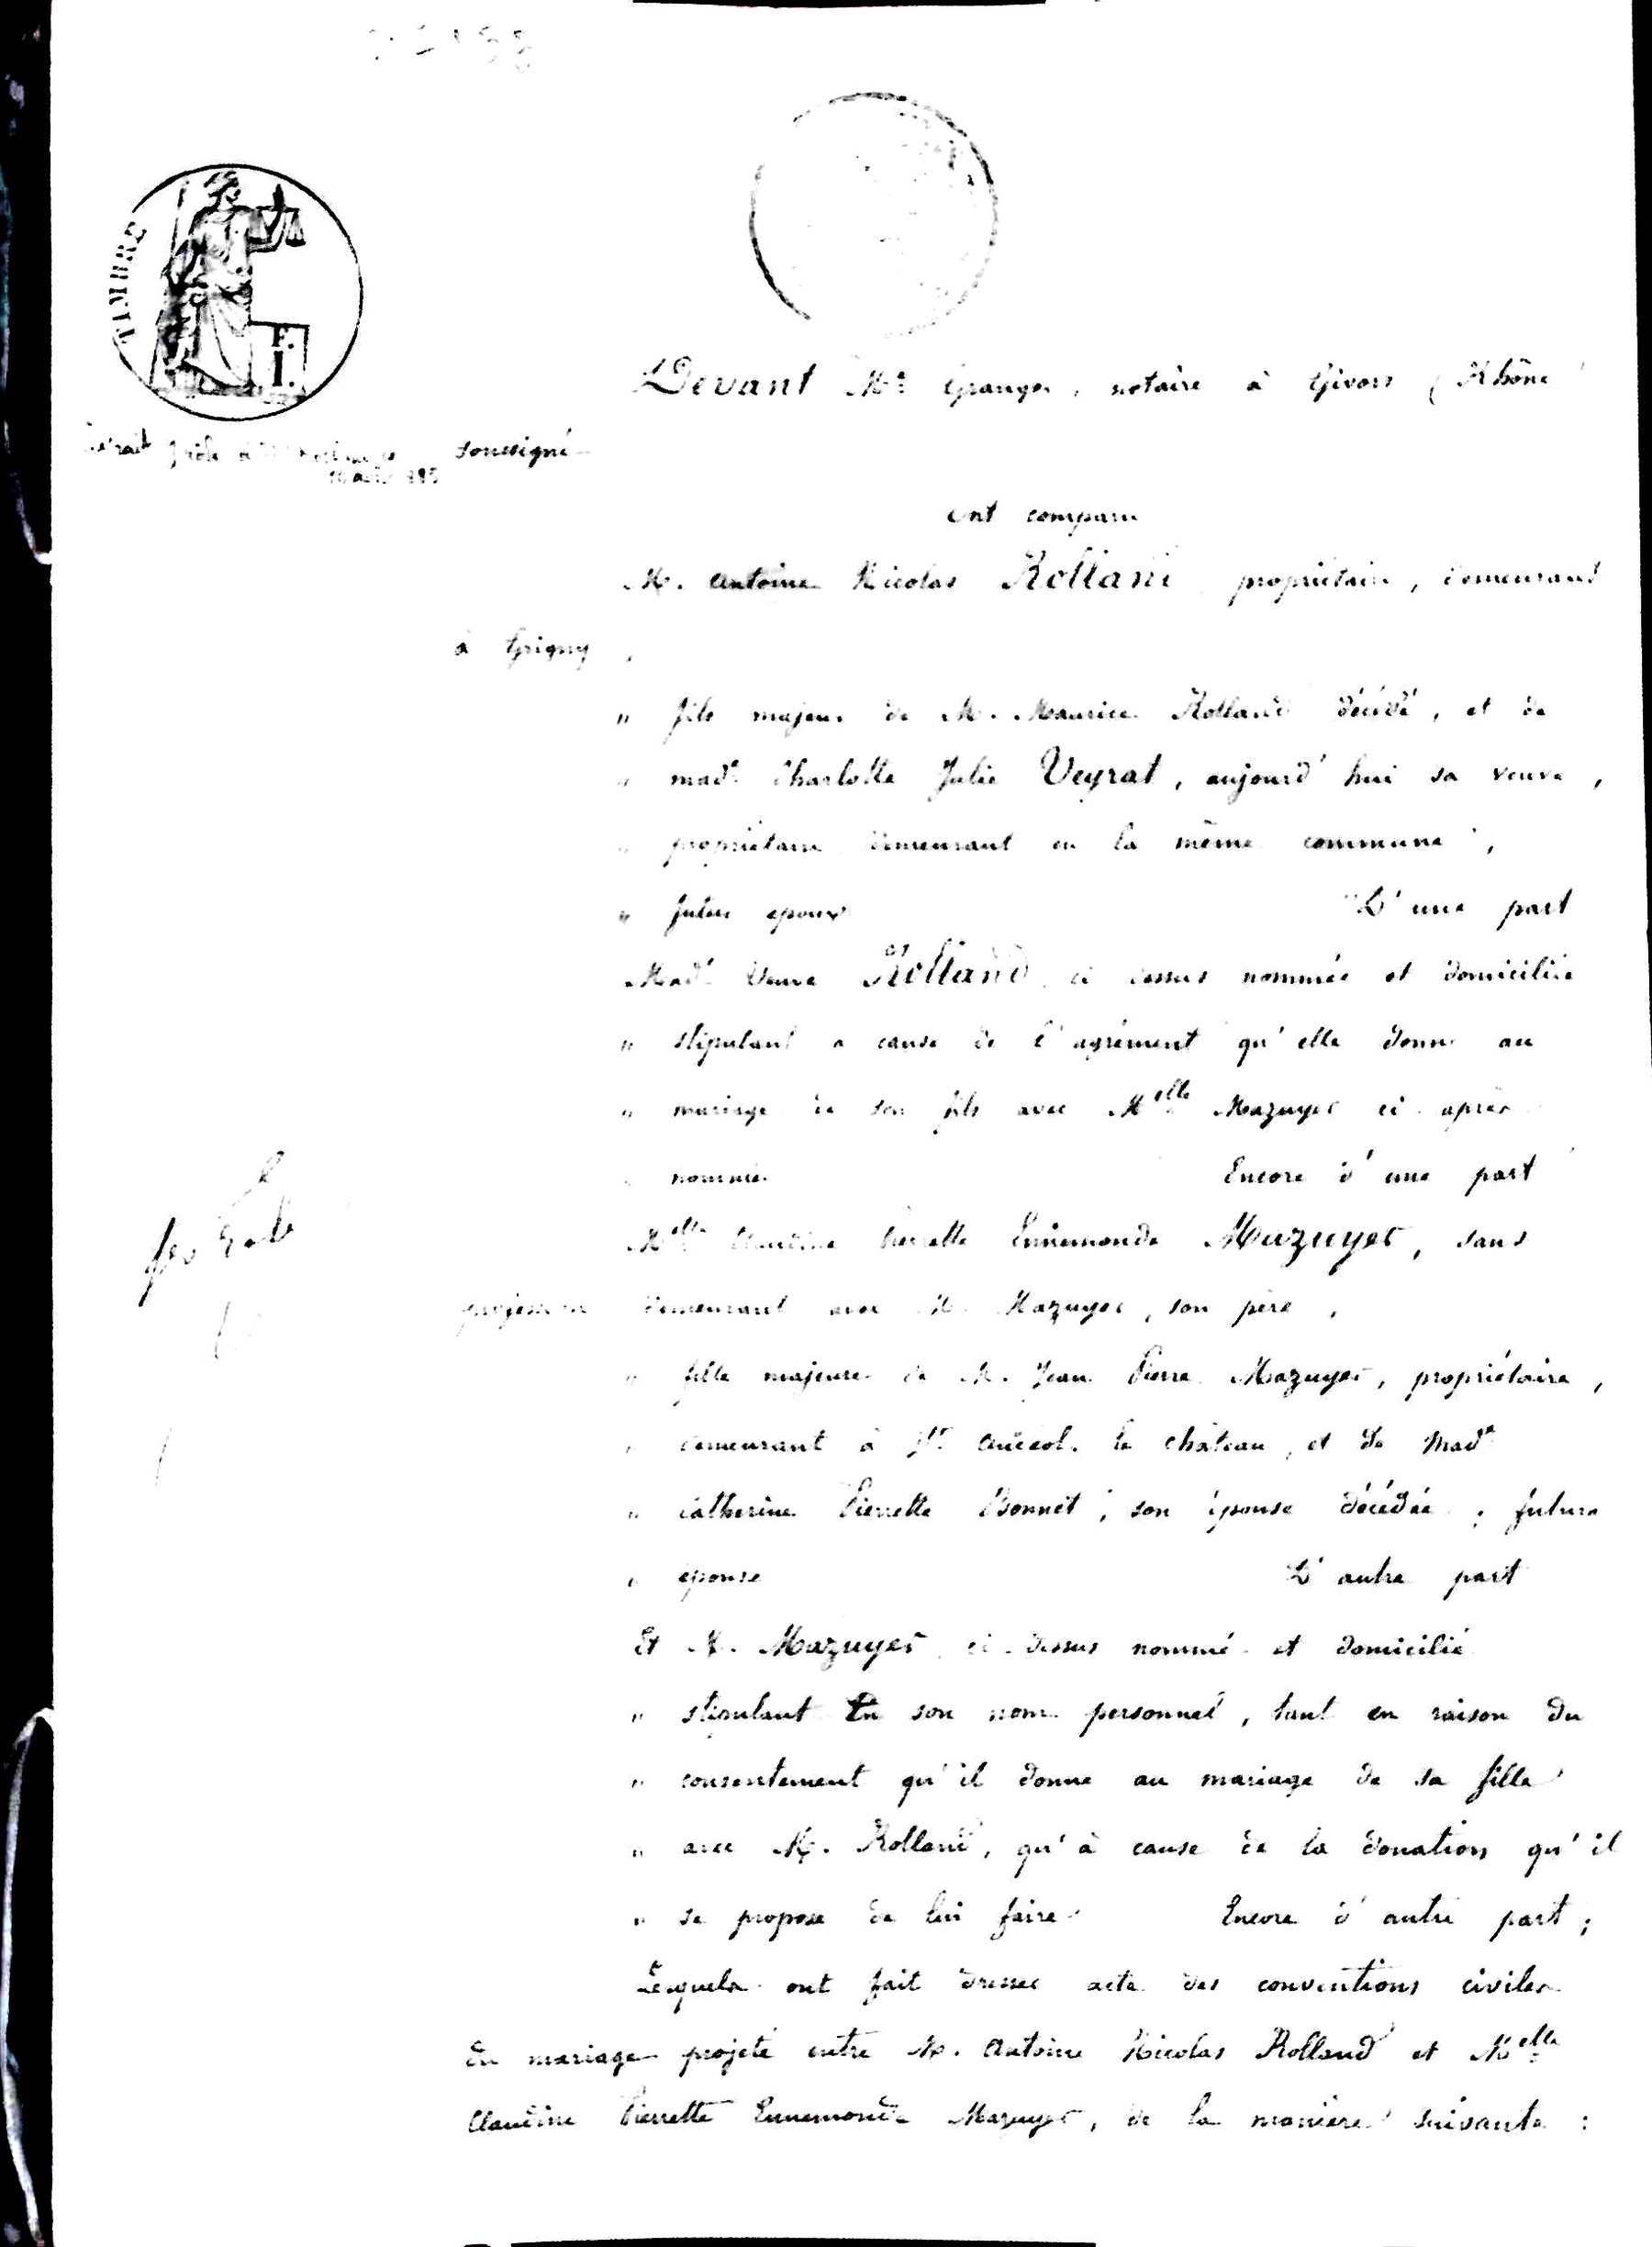 TIMBRE
F.
I.
Devant Me Granger, notaire à Givors (Rhône
soussigné
ont comparu
M. Antoine Nicolas Rolland propriétaire, demeurant
à Grigny,
" fils majeur de M. Maurice Rolland décédé, et de
" made Charlotte Julie Veyrat, aujourd'hui sa veuve,
" propriétaire demeurant en la même commune,
" futur époux D'une part
Made Veuve Rolland ci dessus nommée et domiciliée
" stipulant à cause de l'agrément qu'elle donne au
" mariage de son fils avec Melle Mazuyer ci-après
" nommée Encore d'une part
Melle Claudine Pierrette Ennemonde Mazuyer, sans
profession demeurant avec M. Mazuyer, son père,
" fille majeure de M. Jean Pierre Mazuyer, propriétaire,
" demeurant à St Andéol-le château, et de Made
" Catherine Pierrette Bonnet, son épouse décédée; future
" épouse D'autre part
Et M. Mazuyer ci-dessus nommé et domicilié
" stipulant en son nom personnel, tant en raison du
" consentement qu'il donne au mariage de sa fille
" avec M. Rolland, qu'à cause de la donation qu'il
" se propose de lui faire Encore d'autre part;
Lesquels ont fait dresser acte des conventions civiles
du mariage projeté entre M. Antoine Nicolas Rolland et Melle
Claudine Pierrette Ennemonde Mazuyer, de la manière suivante: